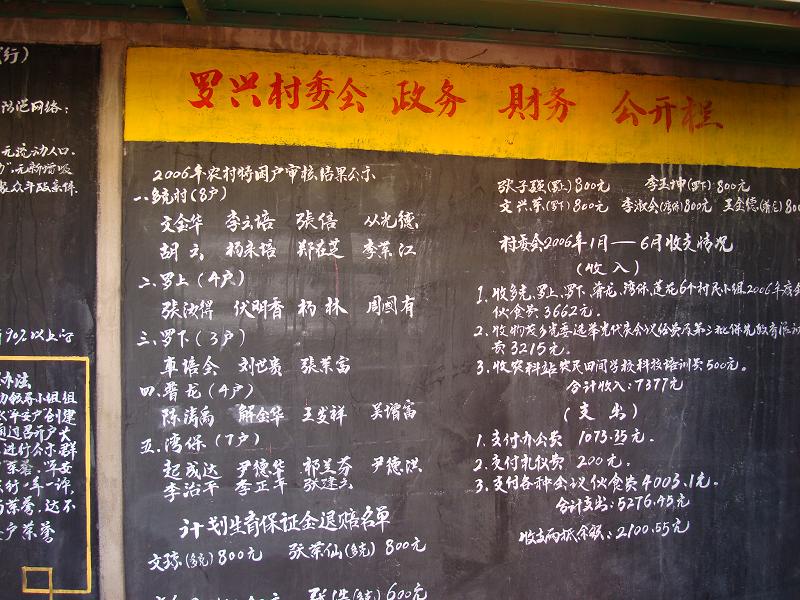 行）
防范网络：
无流动人口、
90%以上
办法
罗兴村委会 政务 财务 公开栏
2006年农村特困户审核结果公示
一、多克村（8户）
文金华 李云培 張信 从光德
胡云 杨末培 郑在芝 李荣江
二、罗上（4户）
张汝得 伏明香 杨林 周国有
三、罗下（3户）
车培全 刘世贵 张荣富
四、普龙（4户）
陈涛禹 解金华 王发祥 吴增富
五、湾保（7户）
起成达 尹德华 祁兰芬 尹德洪
李治平 李正丰 张建云
计划生育保证金退赔名单
文琼（多克）800元 张荣仙（多克）800元
（多克）600元
张子强（罗上）800元 李玉坤（罗下）800元
文兴荣（罗下）800元 李淑会（湾保）800元 王金德（普龙）800
村委会2006年1月——6月收支情况
（收入）
1、收多克、罗上、罗下、普龙、湾保、莲花6个村民小组2006年度
伙食费3662元。
2、收物发乡党委选举党代表会议经费及第三批保先教育活动
费3215元。
3、收农科站农民田间学校科技培训费500元。
合计收入：7377元
（支出）
1、支付办公费 1073.35元。
2、支付礼仪费 200元。
3、支付各种会议伙食费4003.1元。
合计支出：5276.45元
收支两抵，余额：2100.55元